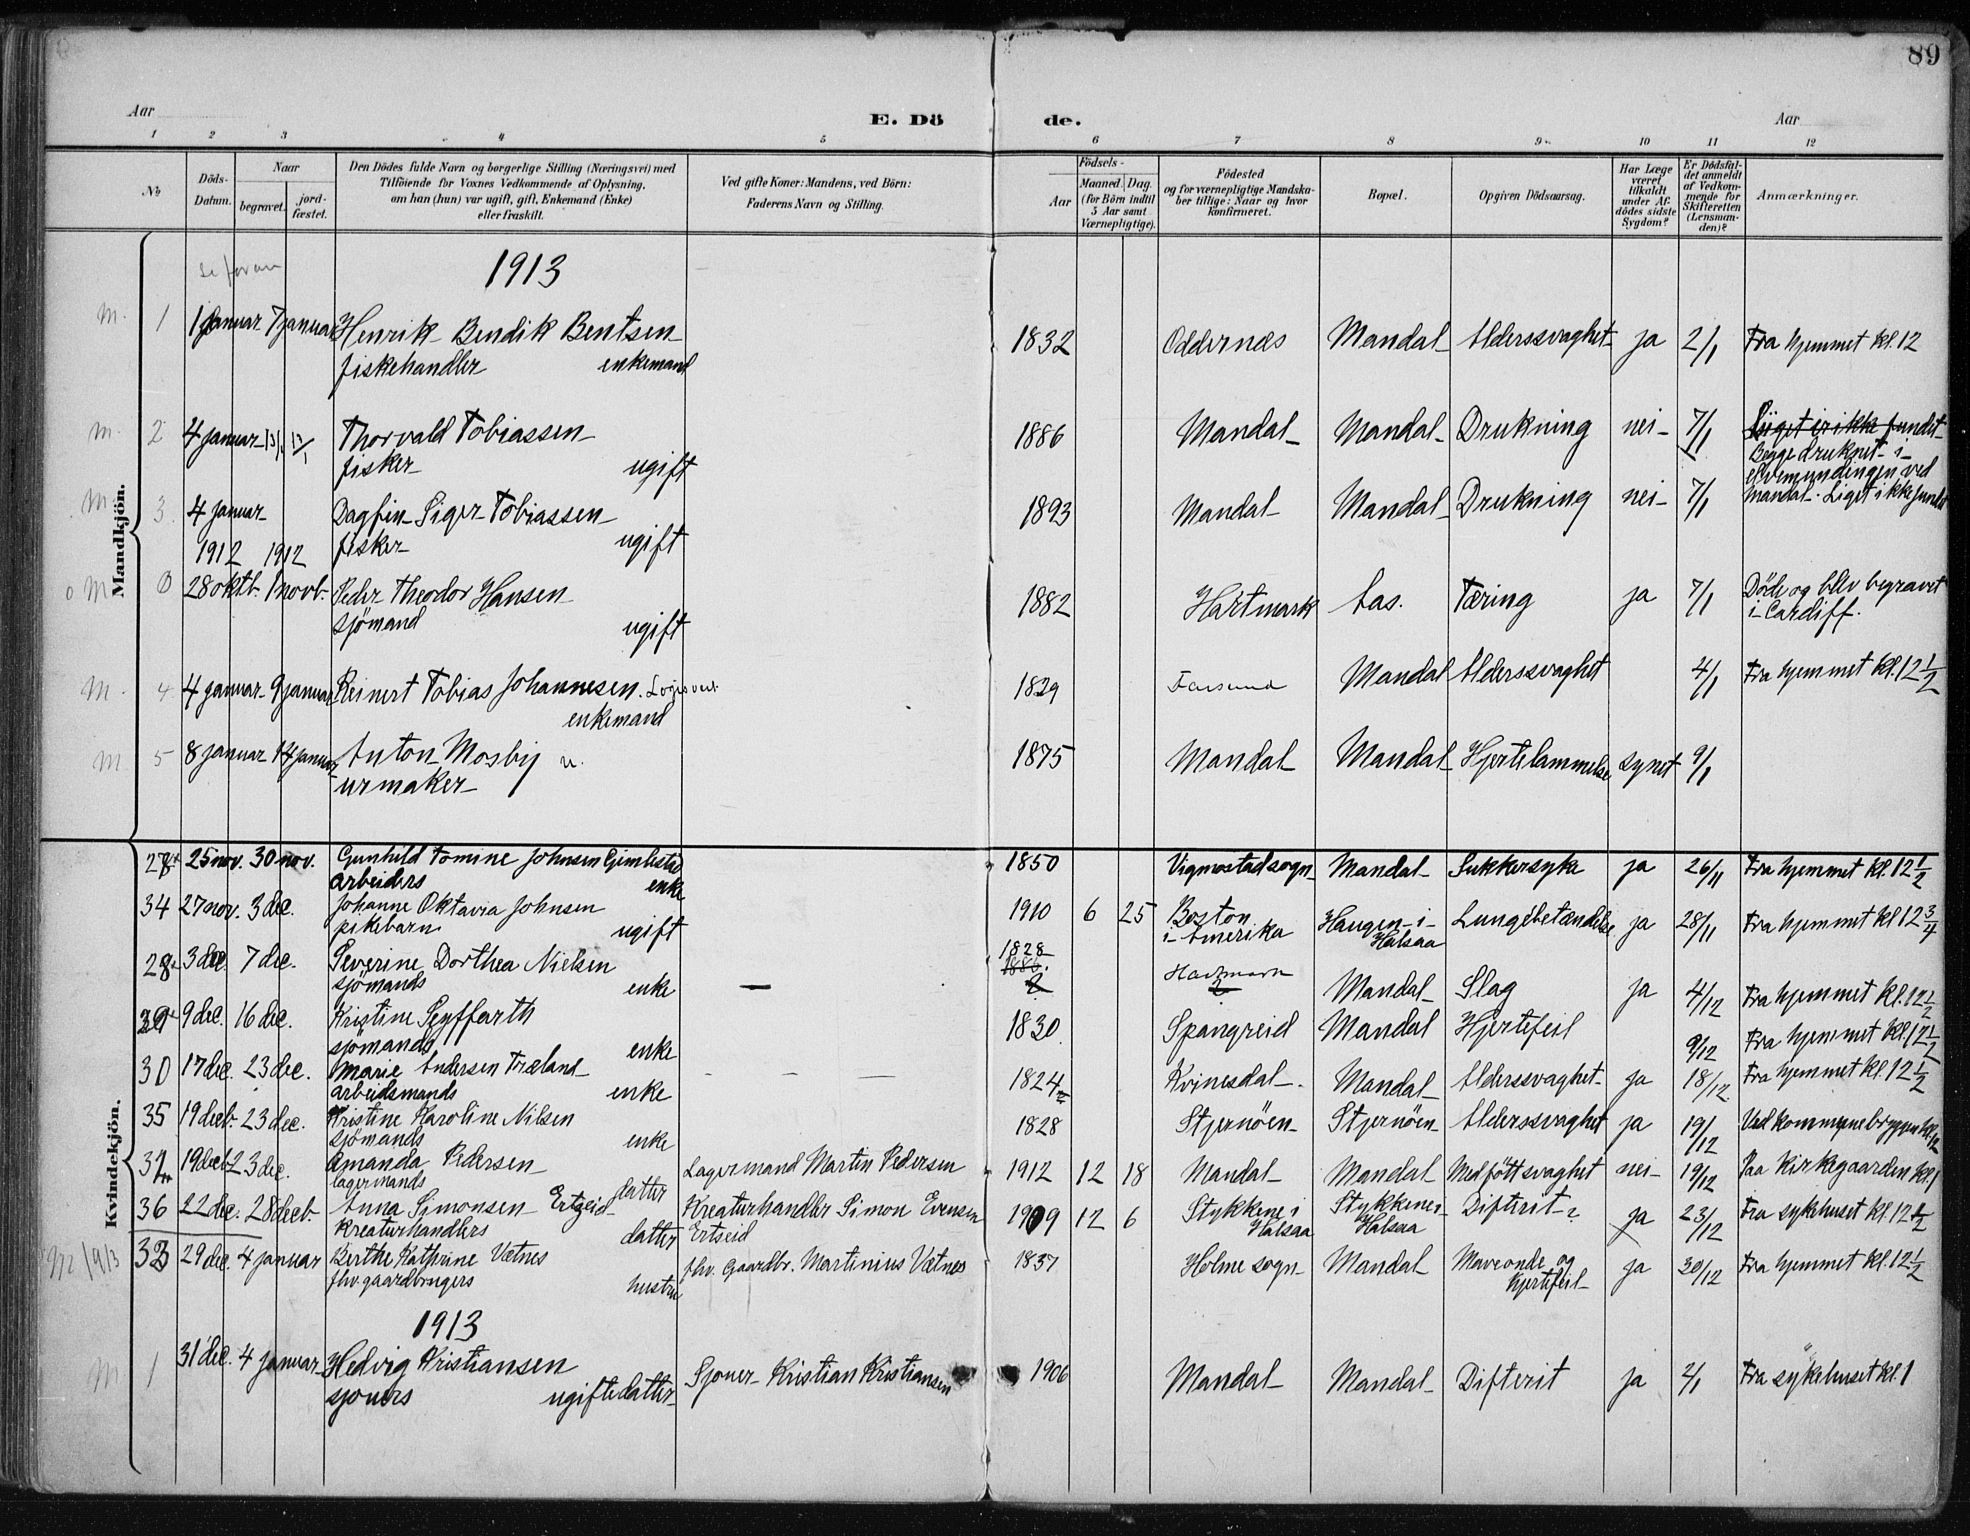 89
Aar
E. Dö
de.
Aar
1 2 3 4 5 6 7 8 9 10 11 12
No
Döds-Datum.
Naar
begravet.
jord-fæstet.
Den Dödes fulde Navn og borgerlige Stilling (Næringsvei) med
Tilföiende for Voxnes Vedkommende af Oplysning,
om han (hun) var ugift, gift, Enkemand (Enke)
eller fraskilt.
Ved gifte Koner: Mandens, ved Börn:
Faderens Navn og Stilling.
Födsels-
Aar
Maaned. Dag.
(for Börn indtil
5 Aar samt
Værnepligtige).
Födested
og for værnepligtige Mandska-
ber tillige: Naar og hvor
konfirmeret.
Bopæl.
Opgiven Dödsaarsag.
Har Læge
været
tilkaldt
under Af-
dödes sidste
Sygdom?
Er Dödsfal-
det anmeldt
af Vedkom-
mende for
Skifteretten
(Lensman-
den)?
Anmærkninger.
Mandkjön.
se foran
1913
M. 1 1 januar 7 januar Henrik Bendik Bentsen 1832 Oddernæs Mandal Alderssvaghet ja 2/1 Fra hjemmet kl. 12
fiskehandler enkemand
M. 2 4 januar 13/1 13/1 Thorvald Tobiassen 1886 Mandal Mandal Drukning nei 7/1 Liget er ikke fundet
fisker ugift Begge druknet i
elvemundingen ved
M 3. 4 januar Dagfin Siger Tobiassen 1893 Mandal Mandal Drukning nei 7/1 Mandal. Liget ikke fundet
fisker ugift
1912 1912
o M 0 28 oktb. 1 novb. Peder Theodor Hansen 1882 Hartmark Aas. Tæring ja 7/1 Döde og blev begravet
sjömand ugift i Cardiff.
M. 4 4 januar 9 januar Reinert Tobias Johannesen. Logisvert. 1829 Farsund Mandal Alderssvaghet 4/1 Fra hjemmet kl. 12 1/2
enkemand
M 5 8 januar 14 januar Anton Mosby u. 1875 Mandal Mandal Hjertelammelse synet 9/1
urmaker
Kvindekjön.
25 nov. 30 nov. Gunhild Tomine Johnsen Gimlestad 1850 Vigmostad sogn Mandal Sukkersyke ja 26/11 Fra hjemmet kl. 12 1/2
arbeiders enke
34 27 nov. 3 dec. Johanne Oktavia Johnsen 1910 6 25 Boston i Amerika Haugen i Halsaa Lungebetændelse ja 28/11 Fra hjemmet kl 12 3/4
pikebarn ugift
28 3 dec. 7 dec. Severine Dorthea Nielsen 1828 Hartmark Mandal Slag ja 4/12 Fra hjemmet kl. 12 1/2
sjömands enke
29 9 dec. 16 dec. Kristine Seyffarth 1830 Spangreid Mandal Hjertefeil 9/12 Fra hjemmet kl. 12 1/2
sjömands enke
30 17 dec. 23 dec. Marie Andersen Træland 1824 Kvinesdal Mandal Alderssvaghet ja 18/12 Fra hjemmet kl. 12 1/2
arbeidsmands enke
35 19 decb. 23 dec. Kristine Karoline Nilsen 1828 Stjernöen Stjernöen Alderssvaghet ja 19/12 Ved kommunebryggen kl. 12
sjömands enke
19 decb 23 dec. Amanda Pedersen Lagermand Martin Pedersen 1912 12 18 Mandal Mandal Medföttsvaghet nei 19/12 Paa kirkegaarden kl. 1
lagermands datter
36 22 dec. 28 decb. Anna Simonsen Ertzeid Kreaturhandler Simon Evensen 1909 12 6 Stykkene i Halsaa Stykkene i Halsaa Difterit ja 23/12 Fra sykehuset kl. 12 1/2
Kreaturhandlers datter Ertseid
M 1913 33 29 dec. 4 januar Berthe Kathrine Vetnes fhv. Gaardbr. Martinius Vetnes 1837 Holme sogn Mandal Maveonde og hjertefeil ja 30/12 Fra hjemmet kl. 12 1/2
fhv. gaardbrugers hustru
1913
M 1 31 dec. 4 januar Hedvig Kristiansen Sjouer Kristian Kristiansen 1906 Mandal Mandal Difterit ja 2/1 Fra sykehuset kl. 1
sjouers ugifte datter